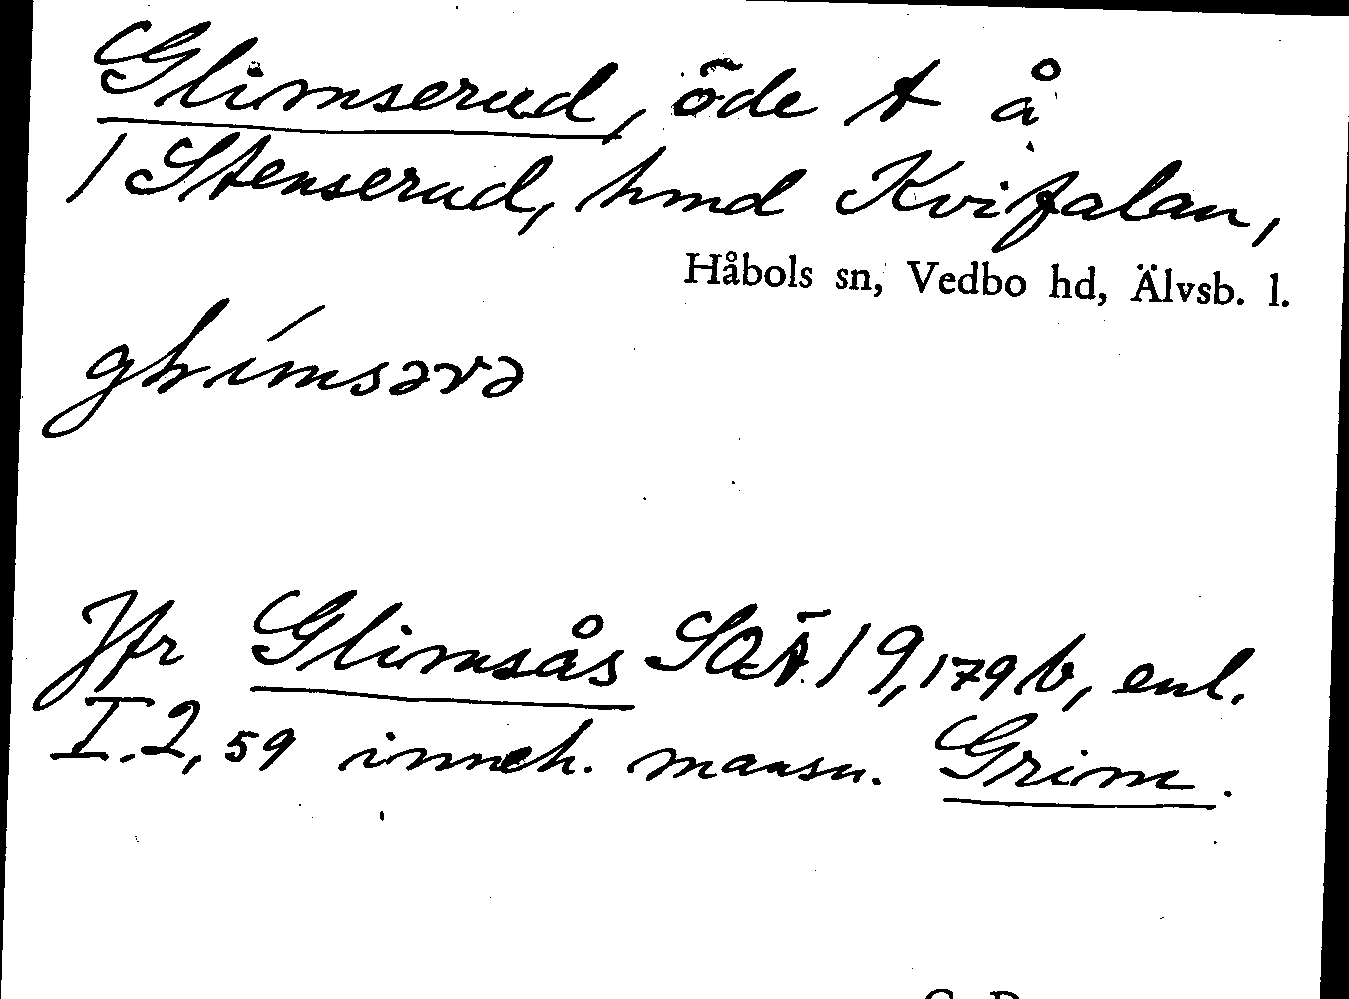 Glimserud, öde t å
/ Stenserud, hmd Kvifalan,
Håbols sn, Vedbo hd, Älvsb. l.
Jfr Glimsås SOÄ 19,179 b, enl.
I.2, 59 inneh. mansn. Grim.